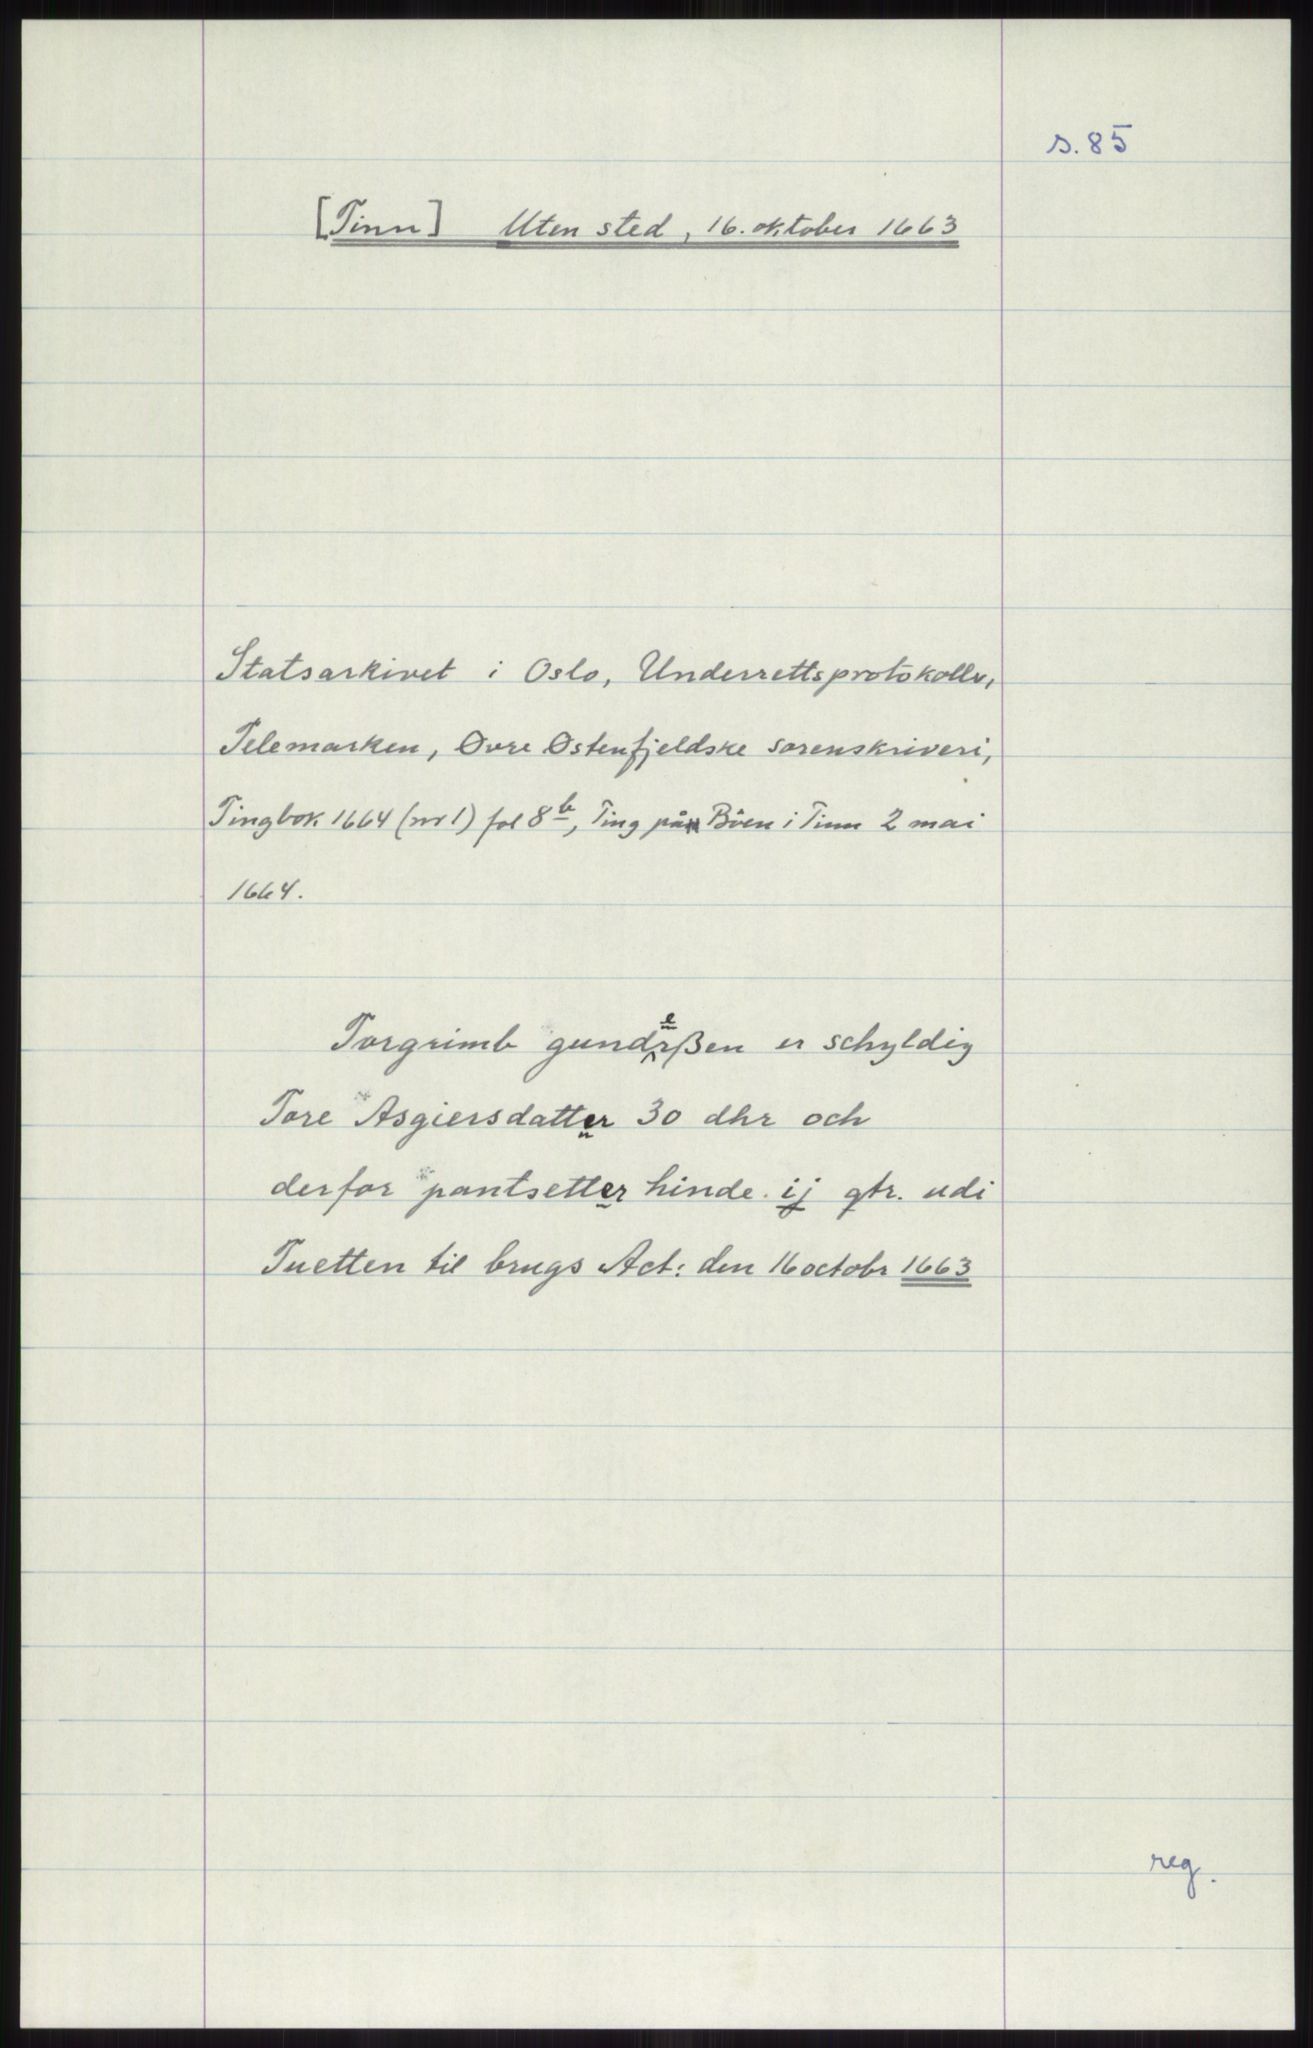 s. 85
[Tinn] Uten sted, 16. oktober 1663
Statsarkivet i Oslo, Underrettsprotokoller,
Telemarken, Øvre Østenfjeldske sorenskriveri,
Tingbok 1664 (nr 1) fol 8b, Ting på Böen i Tinn 2 mai
1664.
Torgrimb gunderßen er schyldig
Tore Asgiersdatter 30 dhr och
derfor pantsetter hinde ij qtr. udi
Tuetten til brugs Act: den 16 octobr 1663
reg.